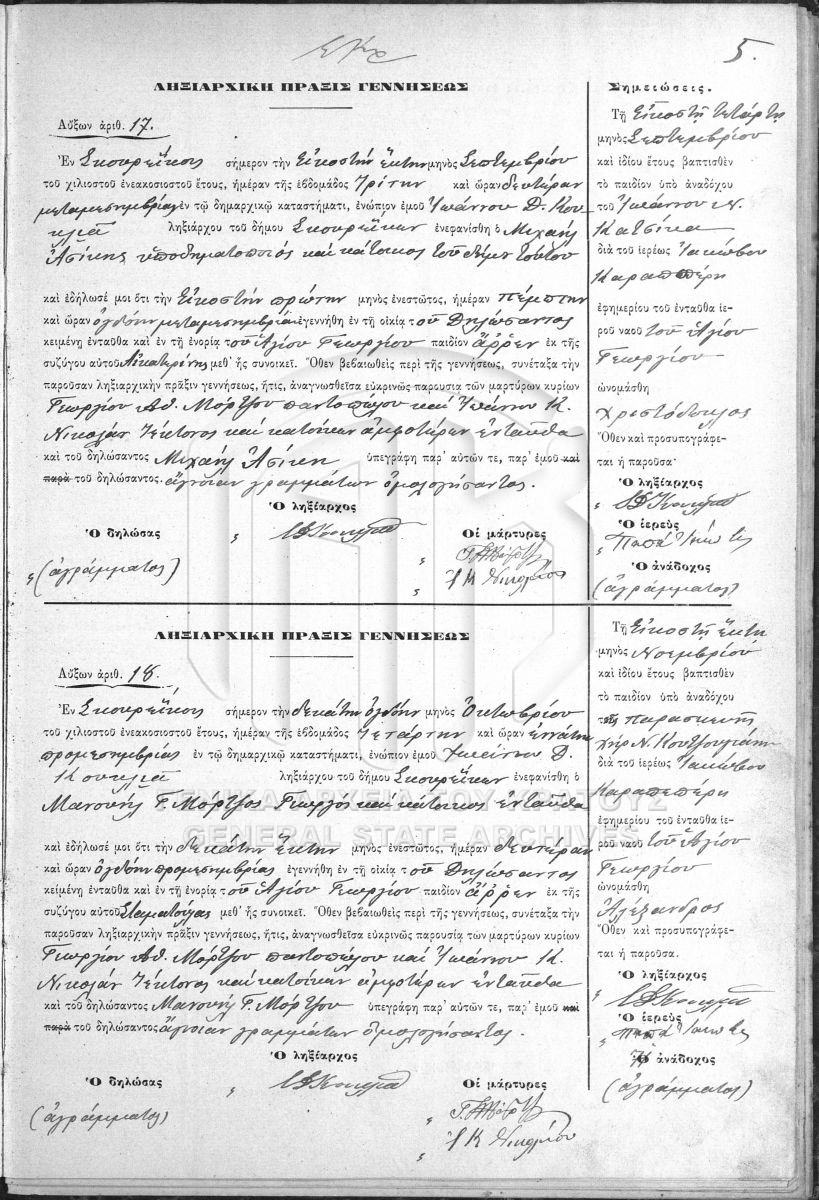 5.
ΛΗΞΙΑΡΧΙΚΗ ΠΡΑΞΙΣ ΓΕΝΝΗΣΕΩΣ
Αὔξων ἀριθ. 17.
Ἐν Σκουρεΐκοις σήμερον τὴν Εἰκοστὴν ἕκτην μηνὸς Σεπτεμβρίου
τοῦ χιλιοστοῦ ἐνεακοσιοστοῦ ἔτους, ἡμέραν τῆς ἑβδομάδος Τρίτην καὶ ὥραν δευτέραν
μεταμεσημβρίας ἐν τῷ δημαρχικῷ καταστήματι, ἐνώπιον ἐμοῦ Ἰωάννου Δ. Κου-
κλιᾶ ληξιάρχου τοῦ δήμου Σκουρεΐκων ἐνεφανίσθη ὁ Μιχαὴλ
Ἀσίκης ὑποδηματοποιὸς καὶ κάτοικος τοῦ δήμου τούτου
καὶ ἐδήλωσέ μοι ὅτι τὴν Εἰκοστὴν πρώτην μηνὸς ἐνεστῶτος, ἡμέραν πέμπτην
καὶ ὥραν ὀγδόην μεταμεσημβρίαν ἐγεννήθη ἐν τῇ οἰκίᾳ τοῦ Δηλώσαντος
κειμένῃ ἐνταῦθα καὶ ἐν τῇ ἐνορίᾳ τοῦ Ἁγίου Γεωργίου παιδίον ἄῤῥεν ἐκ τῆς
συζύγου αὐτοῦ Αἰκατερίνης μεθ' ἧς συνοικεῖ. Ὅθεν βεβαιωθεὶς περὶ τῆς γεννήσεως, συνέταξα τὴν
παροῦσαν ληξιαρχικὴν πρᾶξιν γεννήσεως, ἥτις, ἀναγνωσθεῖσα εὐκρινῶς παρουσίᾳ τῶν μαρτύρων κυρίων
Γεωργίου Ἀθ. Μόρτζου παντοπώλου καὶ Ἰωάννου Κ.
Νικολάου τέκτονος καὶ κατοίκων ἀμφοτέρων ἐνταῦθα
καὶ τοῦ δηλώσαντος Μιχαὴλ Ἀσίκη ὑπεγράφη παρ' αὐτῶν τε, παρ' ἐμοῦ καὶ
παρὰ τοῦ δηλώσαντος. ἄγνοιαν γραμμάτων ὁμολογήσαντος.
Ὁ ληξίαρχος
Ὁ δηλώσας
Οἱ μάρτυρες
(ἀγράμματος)
Ι Κ Νικολάου
Σημειώσεις.
Τῇ Εἰκοστῇ τετάρτῃ
μηνὸς Σεπτεμβρίου
καὶ ἰδίου ἔτους βαπτισθὲν
τὸ παιδίον ὑπὸ ἀναδόχου
τοῦ Ἰωάννου Ν.
Κατσίκα
διὰ τοῦ ἱερέως Ἰακώβου
Καραπεπέρη
ἐφημερίου τοῦ ἐνταῦθα ἱε-
ροῦ ναοῦ τοῦ Ἁγίου
Γεωργίου
ὠνομάσθη
Χριστόδουλος
Ὅθεν καὶ προσυπογράφε-
ται ἡ παροῦσα
Ὁ ληξίαρχος
Ὁ ἱερεὺς
Παπᾶ Ἰακώβος
Ὁ ἀνάδοχος
(ἀγράμματος)
ΛΗΞΙΑΡΧΙΚΗ ΠΡΑΞΙΣ ΓΕΝΝΗΣΕΩΣ
Αὔξων ἀριθ. 18.
Ἐν Σκουρεΐκοις σήμερον τὴν δεκάτην ὀγδόην μηνὸς Ὀκτωβρίου
τοῦ χιλιοστοῦ ἐνεακοσιοστοῦ ἔτους, ἡμέραν τῆς ἑβδομάδος Τετάρτην καὶ ὥραν ἐννάτην
προμεσημβρίας ἐν τῷ δημαρχικῷ καταστήματι, ἐνώπιον ἐμοῦ Ἰωάννου Δ.
Κουκλιᾶ ληξιάρχου τοῦ δήμου Σκουρεΐκων ἐνεφανίσθη ὁ
Μανουὴλ Γ. Μόρτζος Γεωργὸς καὶ κάτοικος ἐνταῦθα
καὶ ἐδήλωσέ μοι ὅτι τὴν δεκάτην ἕκτην μηνὸς ἐνεστῶτος, ἡμέραν δευτέραν
καὶ ὥραν ὀγδόην προμεσημβρίας ἐγεννήθη ἐν τῇ οἰκίᾳ τοῦ Δηλώσαντος
κειμένῃ ἐνταῦθα καὶ ἐν τῇ ἐνορίᾳ τοῦ Ἁγίου Γεωργίου παιδίον ἄῤῥεν ἐκ τῆς
συζύγου αὐτοῦ Σταματούλας μεθ' ἧς συνοικεῖ. Ὅθεν βεβαιωθεὶς περὶ τῆς γεννήσεως, συνέταξα τὴν
παροῦσαν ληξιαρχικὴν πρᾶξιν γεννήσεως, ἥτις, ἀναγνωσθεῖσα εὐκρινῶς παρουσίᾳ τῶν μαρτύρων κυρίων
Γεωργίου Ἀθ. Μόρτζου παντοπώλου καὶ Ἰωάννου Κ.
Νικολάου τέκτονος καὶ κατοίκων ἀμφοτέρων ἐνταῦθα
καὶ τοῦ δηλώσαντος Μανουὴλ Γ. Μόρτζου ὑπεγράφη παρ' αὐτῶν τε, παρ' ἐμοῦ καὶ
παρὰ τοῦ δηλώσαντος ἄγνοιαν γραμμάτων ὁμολογήσαντος.
Ὁ ληξίαρχος
Ὁ δηλώσας
Οἱ μάρτυρες
(ἀγράμματος)
Ι Κ Νικολάου
Τῇ Εἰκοστῇ ἕκτῃ
μηνὸς Νοεμβρίου
καὶ ἰδίου ἔτους βαπτισθὲν
τὸ παιδίον ὑπὸ ἀναδόχου
τῆς Παρασκευῆς
χήρ. Ν.
διὰ τοῦ ἱερέως Ἰακώβου
Καραπεπέρη
ἐφημερίου τοῦ ἐνταῦθα ἱε-
ροῦ ναοῦ τοῦ Ἁγίου
Γεωργίου
ὠνομάσθη
Ἀλέξανδρος
Ὅθεν καὶ προσυπογράφε-
ται ἡ παροῦσα.
Ὁ ληξίαρχος
Ὁ ἱερεὺς
Παπᾶ Ἰακώβος
Ἡ ἀνάδοχος
(ἀγράμματος)
ΓΕΝΙΚΑ ΑΡΧΕΙΑ ΤΟΥ ΚΡΑΤΟΥΣ
GENERAL STATE ARCHIVES